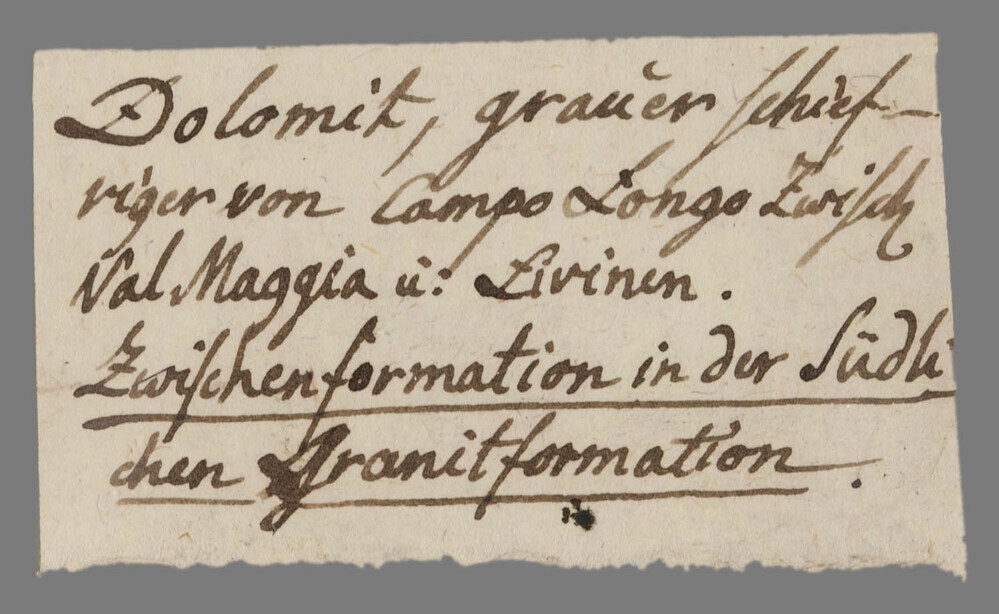 Dolomit, grauer schief-
riger von Campo Longo Zwisch
Val Maggia u: Livinen.
Zwischenformation in der Südli
chen Granitformation.